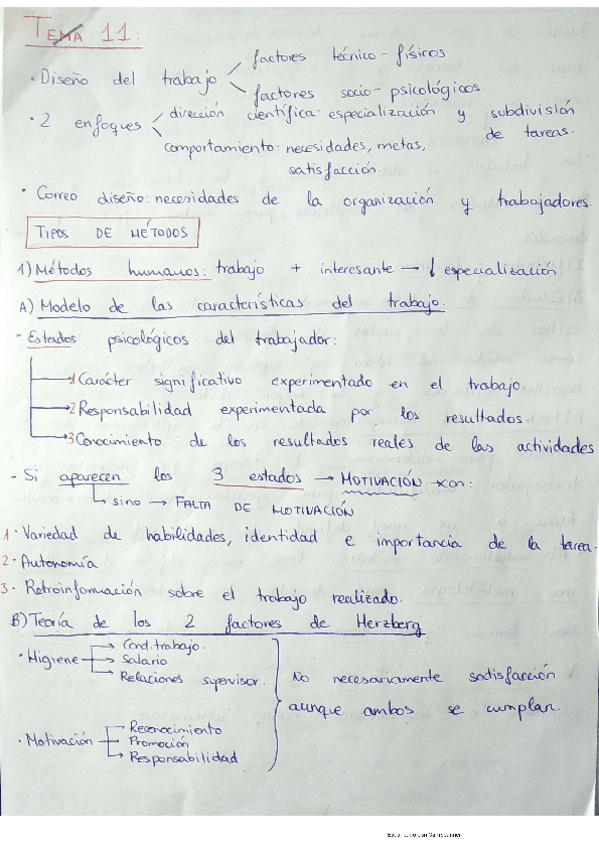 TEMA 11:
· Diseño del trabajo factores técnico-físicos
factores socio-psicológicos.
· 2 enfoques dirección científica: especialización y subdivisión de tareas.
comportamiento: necesidades, metas, satisfacción.
· Correo diseño: necesidades de la organización y trabajadores.
TIPOS DE MÉTODOS
1) Métodos humanos: trabajo + interesante → ↓ especialización.
A) Modelo de las características del trabajo.
- Estados psicológicos del trabajador:
1 Carácter significativo experimentado en el trabajo.
2 Responsabilidad experimentada por los resultados.
3 Conocimiento de los resultados reales de las actividades
- Si aparecen los 3 estados → MOTIVACIÓN con:
sino → FALTA DE MOTIVACIÓN
1 · Variedad de habilidades, identidad e importancia de la tarea.
2 · Autonomía
3 · Retroinformación sobre el trabajo realizado.
B) Teoría de los 2 factores de Herzberg
· Higiene → Cond. trabajo.
→ Salario
→ Relaciones supervisor.
No necesariamente satisfacción
aunque ambos se cumplan.
· Motivación → Reconocimiento
→ Promoción
→ Responsabilidad